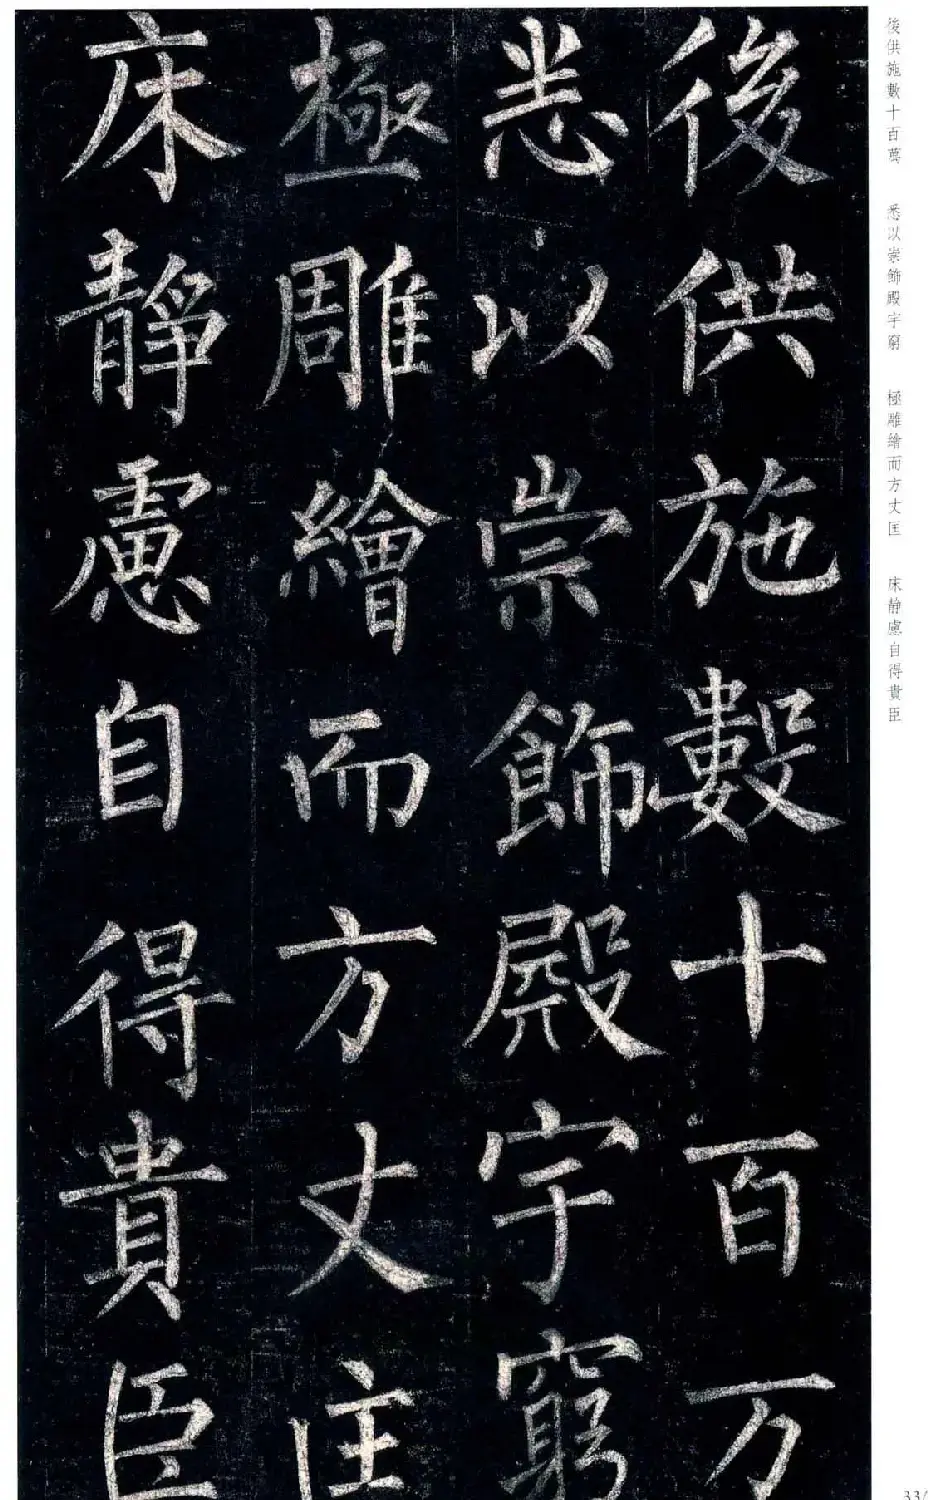 後供施數十百万
悉以崇飾殿宇窮
極雕繪而方丈匡
床靜慮自得貴臣
後供施數十百萬 悉以崇飾殿宇窮 極雕繪而方丈匡 床静慮自得貴臣
33/